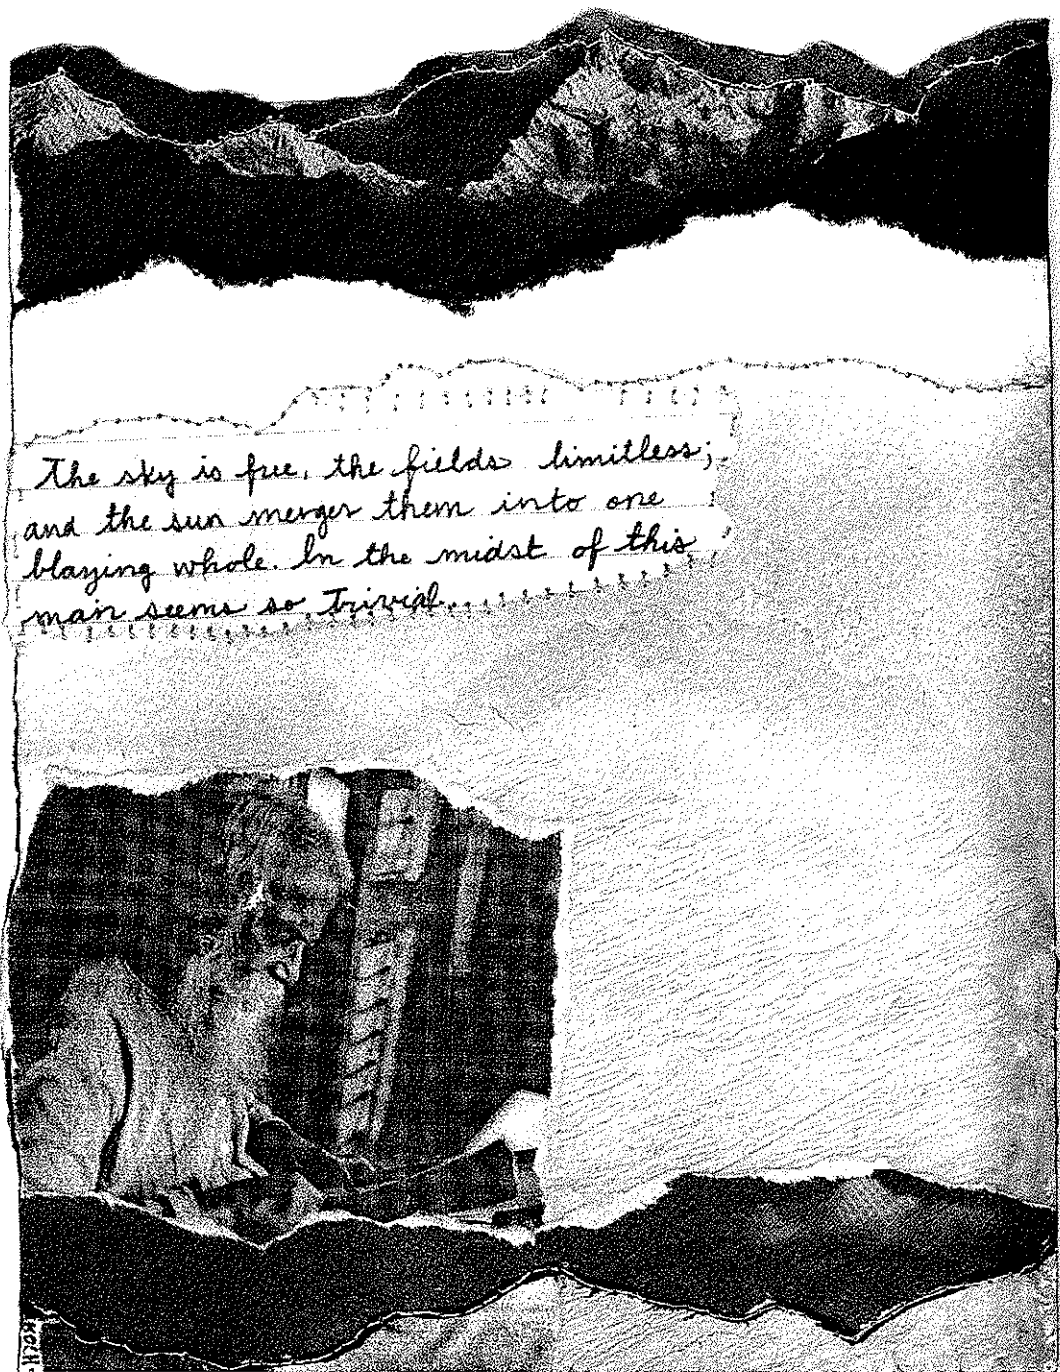 The sky is free, the fields limitless;
and the sun merges them into one
blazing whole. In the midst of this
man seems so trivial.